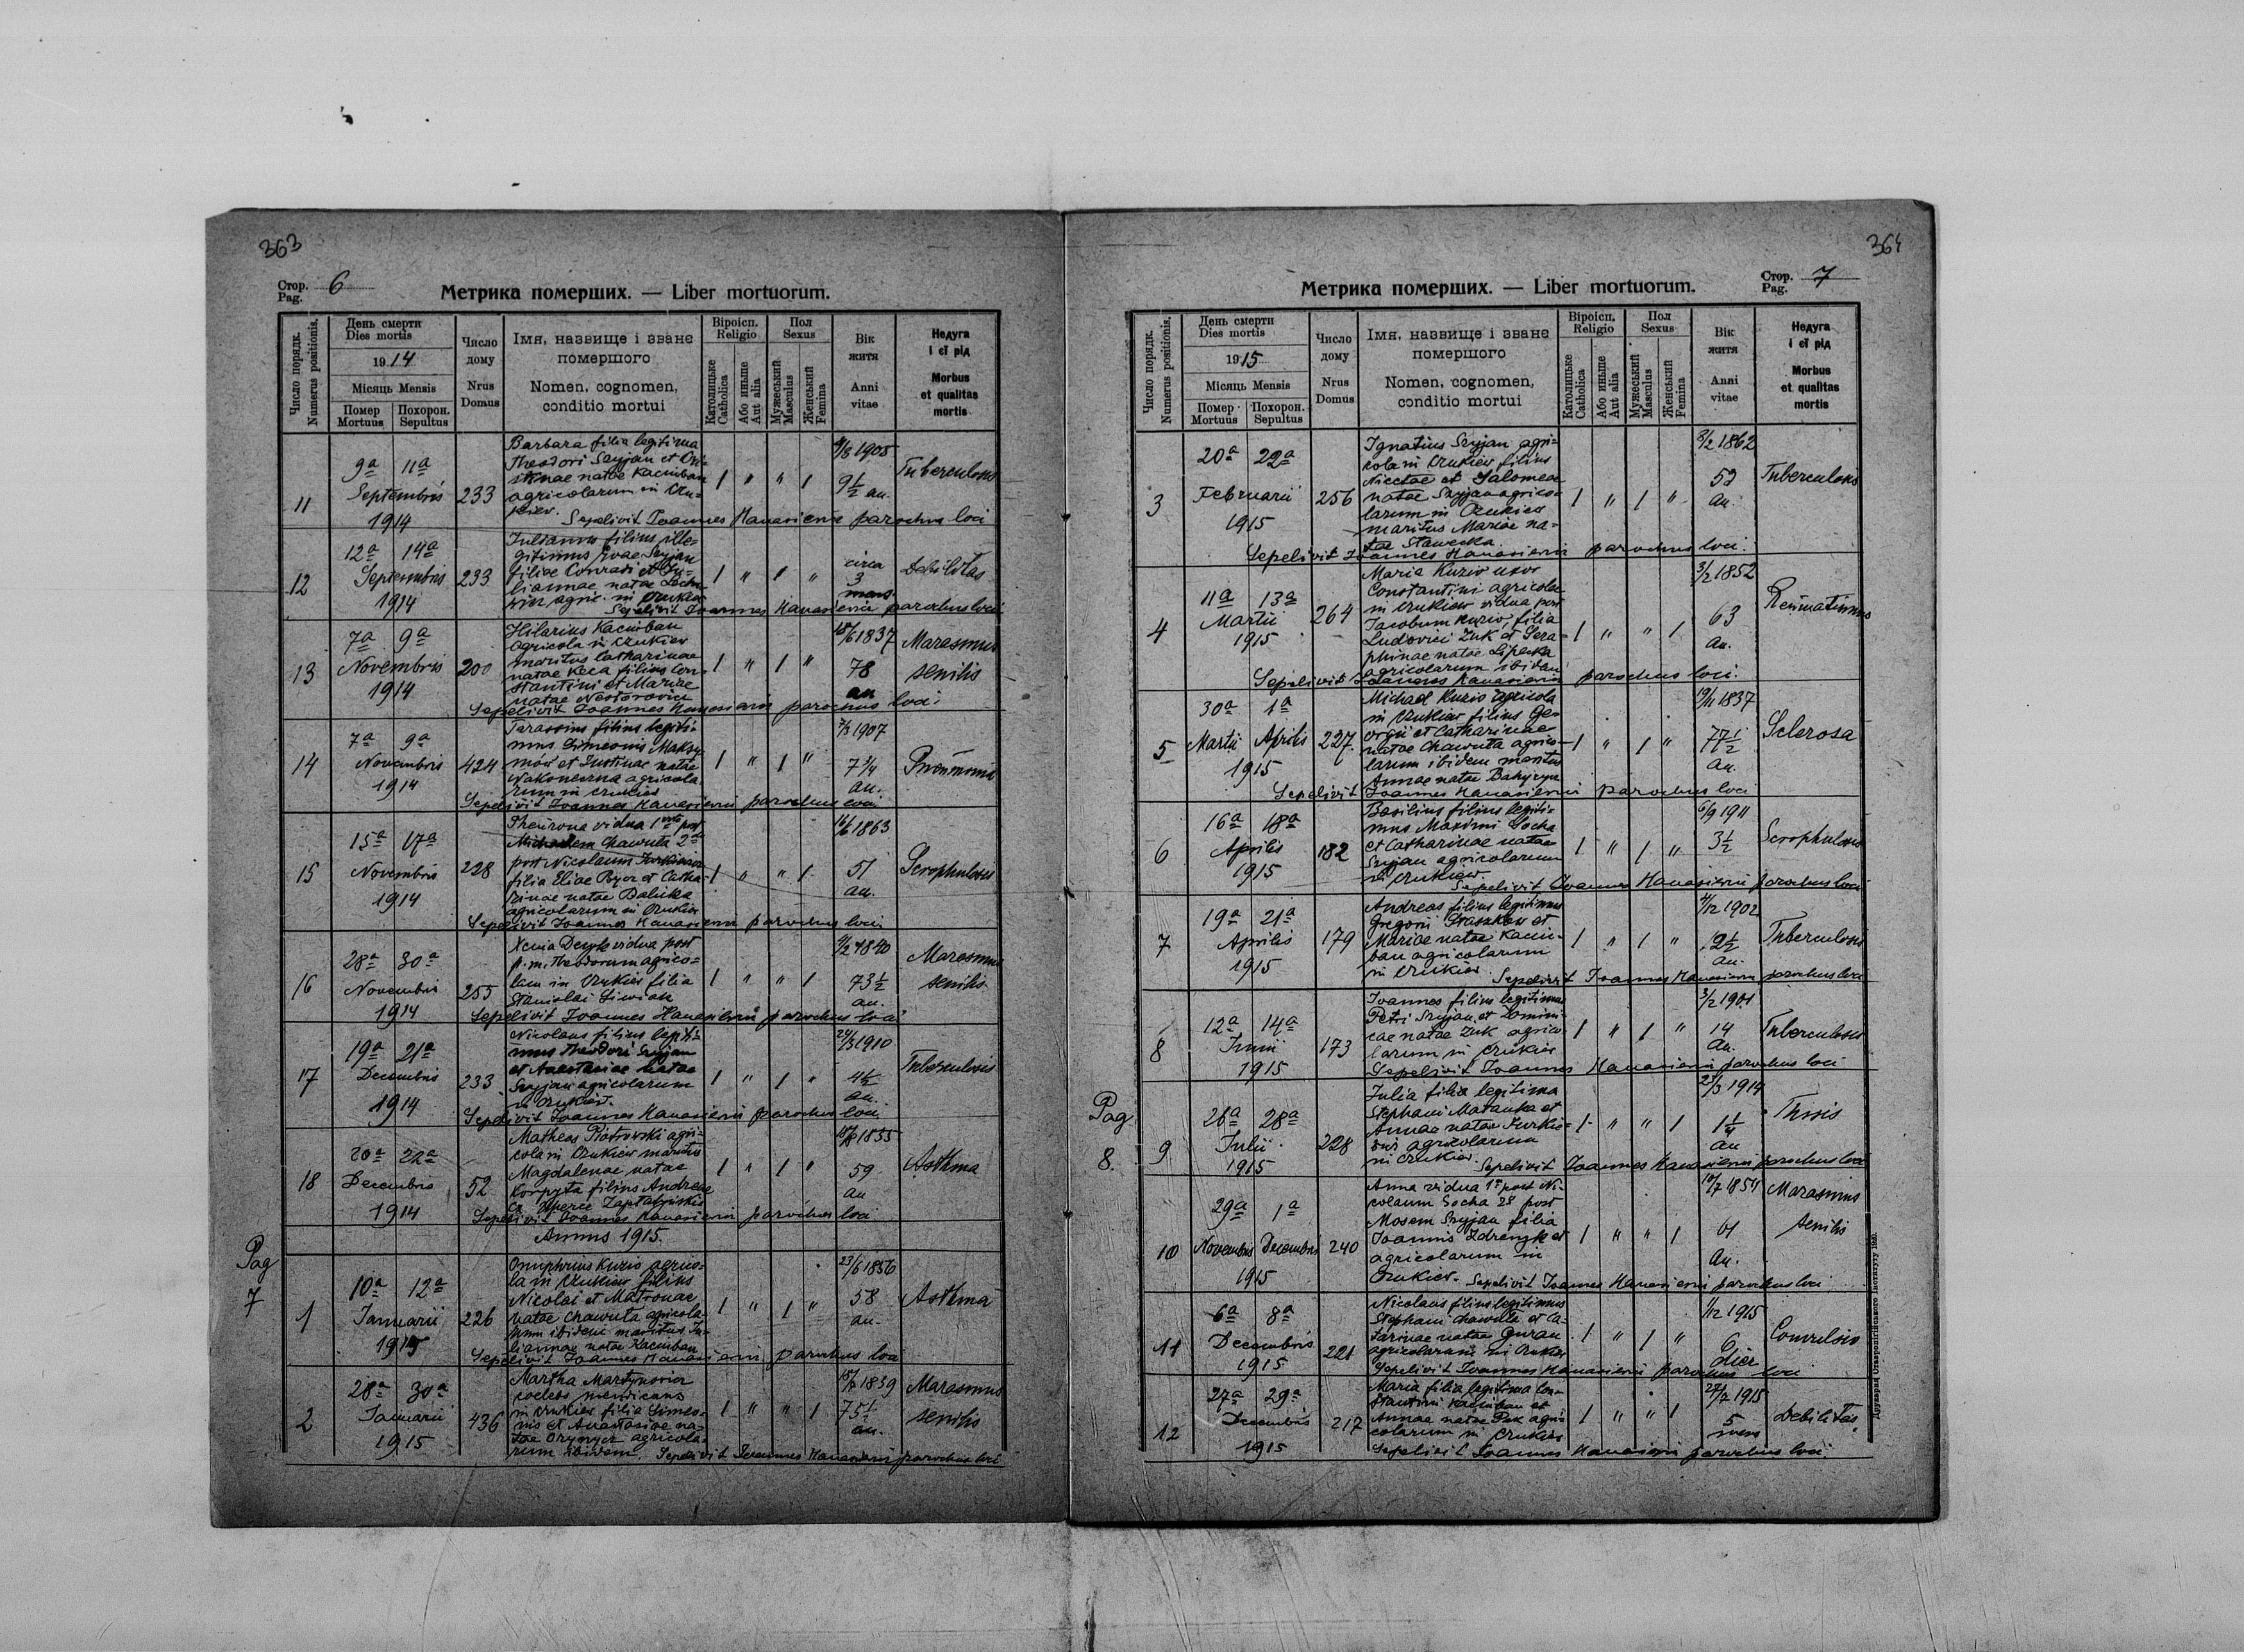 363
Стор. Pag. 6
Метрика померших. — Liber mortuorum.
Число порядк. Numerus positionis.
День смерти Dies mortis
1914
Місяць Mensis
Помер Mortuus
Похорон. Sepultus
Число дому Nrus Domus
Імя, назвище і зване помершого
Nomen, cognomen, conditio mortui
Віроісп. Religio
Католицьке Catholica
Або иньше Aut alia
Пол Sexus
Мужеський Masculus
Женський Femina
Вік житя Anni vitae
Недуга і єї рід
Morbus et qualitas mortis
11
9a 11a
Septembris
1914
233
Barbara filia legitima
Theodori Szyjan et
natae Kacuiban
agricolarum in
Sepelivit Joannes parochus loci
1 " " 1
1905
9½ an.
Tuberculosis
12
12a 14a
Septembris
1914
233
Julianus filius ille-
gitimus Evae Szyjan
filiae Conradi et Ju-
liannae natae
agric. in
Sepelivit Joannes parochus loci
1 " 1 "
circa
3
mens
Debilitas
13
7a 9a
Novembris
1914
200
Hilarius Kacuiban
agricola in
maritus Catharinae
natae filius Con-
stantini et Mariae
natae Nestorovicz
Sepelivit Joannes parochus loci
1 " 1 "
1837
78
an
Marasmus
senilis
14
7a 9a
Novembris
1914
424
Tarassius filius legiti-
mus Simeonis Maksy-
mow et Justinae natae
Nakoneczna agricola
rum in
Sepelivit Joannes parochus loci
1 " 1 "
1907
7¾
an.
15
15a 17a
Novembris
1914
228
vidua 1 post
Michaelem Chawuta 2
post Nicolaum
filia Eliae et Catha-
rinae natae
agricolarum in
Sepelivit Joannes parochus loci
1 " " 1
1863
51
an.
Scrophulosis
16
28a 30a
Novembris
1914
255
Xenia vidua post
p. m. Theodorum agrico-
lam in filia
Stanislai
Sepelivit Joannes parochus loci
1 " " 1
1840
73½
an.
Marasmus
senilis
17
19a 21a
Decembris
1914
233
Nicolaus filius legiti-
mus Theodori Szyjan
et Anastasiae natae
Szyjan agricolarum
in
Sepelivit Joannes parochus loci
1 " 1 "
1910
4½
an.
Tuberculosis
18
20a 22a
Decembris
1914
52
Matheas Piotrowski agri-
cola in maritus
Magdalenae natae
Korpyta filius Andreae
Sepelivit Joannes parochus loci
1 " 1 "
1855
59
an
Asthma
Annus 1915.
Pag
7
1
10a 12a
Januarii
1915
226
Onuphrius Kuzio agrico-
la in filius
Nicolai et Matronae
natae Chawuta agricola-
rum ibidem maritus Ju-
liannae natae Kacuiban
Sepelivit Joannes parochus loci
1 " 1 "
23/6 1856
58
an.
Asthma
2
28a 30a
Januarii
1915
436
Martha Martynovicz
coelebs mendicans
in filia Simeo-
nis et Anastasiae na-
tae agricola-
rum ibidem. Sepelivit Joannes parochus loci
1 " " 1
1839
75½
an.
Marasmus
senilis
364
Стор. Pag. 7
Метрика померших. — Liber mortuorum.
Число порядк. Numerus positionis.
День смерти Dies mortis
1915
Місяць Mensis
Помер Mortuus
Похорон. Sepultus
Число дому Nrus Domus
Імя, назвище і зване помершого
Nomen, cognomen, conditio mortui
Віроісп. Religio
Католицьке Catholica
Або иньше Aut alia
Пол Sexus
Мужеський Masculus
Женський Femina
Вік житя Anni vitae
Недуга і єї рід
Morbus et qualitas mortis
3
20a 22a
Februarii
1915
256
Ignatius Szyjan agri-
cola in filius
Nicetae et Salomeae
natae Szyjan agrico-
larum in
maritus Mariae na-
tae Stawecka
Sepelivit Joannes parochus loci.
1 " 1 "
1862
52
an.
Tuberculosis
4
11a 13a
Martii
1915
264
Maria Kuzio uxor
Constantini agricolae
in vidua post
Jacobum Kuzio, filia
Ludovici Zuk et Sera-
phinae natae Lipecka
agricolarum ibidem
Sepelivit Joannes parochus loci.
1 " " 1
3/2 1852
63
an.
5
30a 1a
Martii Aprilis
1915
227
Michael Kuzio agricola
in filius Ge-
orgii et Catharinae
natae Chawuta agrico-
larum ibidem maritus
Annae natae
Sepelivit Joannes parochus loci
1 " 1 "
19/11 1837
77½
an.
Sclerosa
6
16a 18a
Aprilis
1915
182
Basilius filius legiti-
mus Maximi Socha
et Catharinae natae
Szyjan agricolarum
in
Sepelivit Joannes parochus loci
1 " 1 "
6/9 1911
3½
Scrophulosis
7
19a 21a
Aprilis
1915
179
Andreas filius legitimus
Gregorii et
Mariae natae Kacui-
ban agricolarum
in
Sepelivit Joannes parochus loci
1 " 1 "
1902
12½
an.
Tuberculosis
8
12a 14a
Junii
1915
173
Joannes filius legitimus
Petri Szyjan et Domini-
cae natae Zuk agrico-
larum in
Sepelivit Joannes parochus loci
1 " 1 "
3/2 1901
14
an.
Tuberculosis
Pag
8.
9
26a 28a
Julii
1915
228
Julia filia legitima
Stephani et
Annae natae
agricolarum
in
Sepelivit Joannes parochus loci
1 " " 1
1914
1¼
an
10
29a 1a
Novembris Decembris
1915
240
Anna vidua 1 post Ni-
colaum Socha 2 post
Mosem Szyjan filia
Joannis et
agricolarum in
Sepelivit Joannes parochus loci
1 " " 1
an.
Marasmus
senilis
11
6a 8a
Decembris
1915
221
Nicolaus filius legitimus
Stephani Chawuta et Ca-
tarinae natae
agricolarum in
Sepelivit Joannes parochus loci
1 " 1 "
1/12 1915
6
dier
Convulsio
12
27a 29a
Decembris
1915
217
Maria filia legitima Con-
stantini Kacuiban et
Annae natae Pak agri-
colarum in
Sepelivit Joannes parochus loci.
1 " " 1
27/7 1915
5
mens
Debilitas